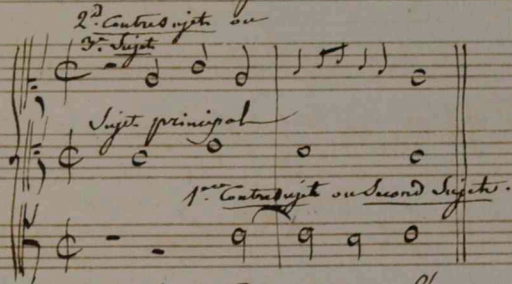 2.d Contresujet ou
3.e Sujet
Sujet principal
1.er Contresujet ou Second Sujet.